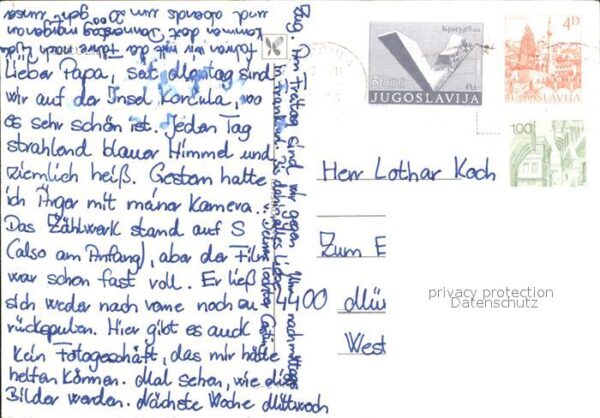 Lieber Papa, seit Montag sind
wir auf der Insel Korcula, wo
es sehr schön ist. Jeden Tag
strahlend blauer Himmel und
ziemlich heiß. Gestern hatte
ich Ärger mit meiner Kamera.
Das Zählwerk stand auf S
(also am Anfang), aber der Film
war schon fast voll. Er ließ
sich weder nach vorne noch zu-
rückspulen. Hier gibt es auch
kein Fotogeschäft, das mir hätte
helfen können. Mal sehen, wie die
Bilder werden. Nächste Woche Mittwoch
fahren wir mit der Fähre nach
kommen dort Donnerstag morgen an
und abends um 20⁰⁰ geht unser
Zug. Am Freitag sind wir gegen Uhr nachmittags
in Frankfurt. Bis dahin alles Liebe
Deine Tochter
Крагујевац
30.00
Ри
JUGOSLAVIJA
4D
JUGOSLAVIJA
100
Herr Lothar Koch
Zum E
4400 Mün
West
privacy protection
Datenschutz